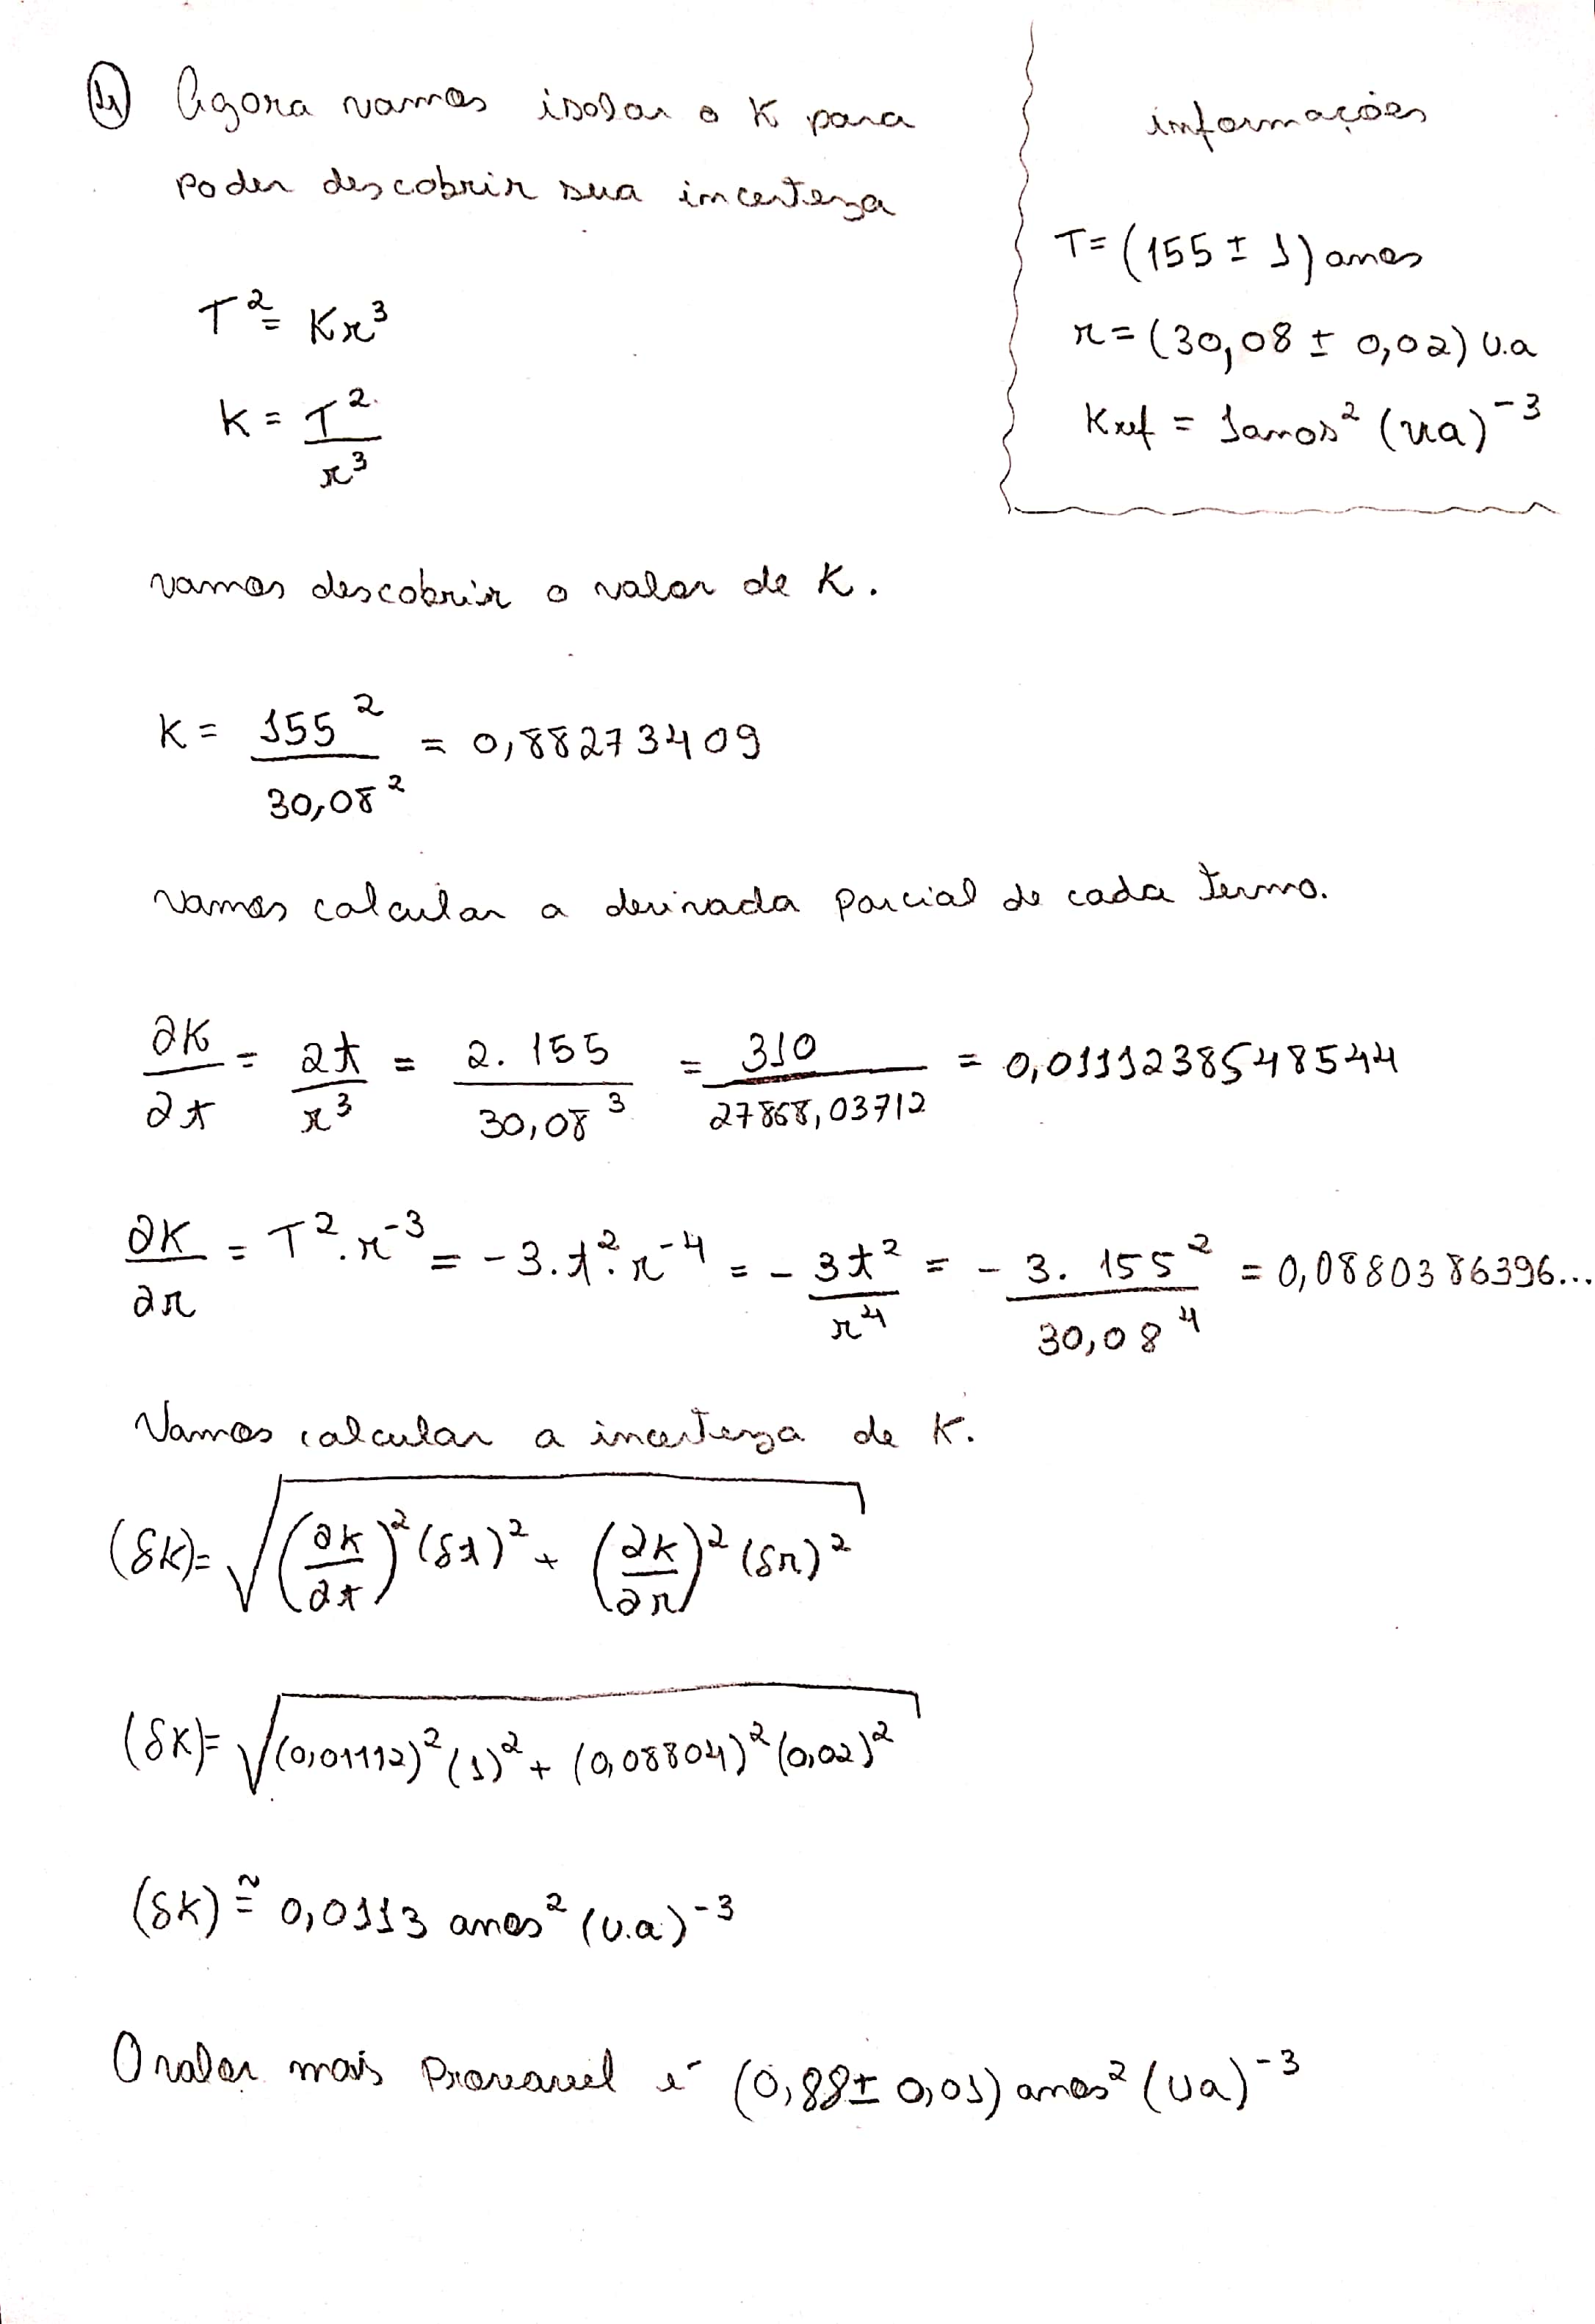 4 Agora vamos isolar o K para
poder descobrir sua incerteza
T² = Kr³
K = T²/r³
informações
T = (155 ± 1) anos
r = (30,08 ± 0,02) u.a
Kref = 1anos² (ua)⁻³
vamos descobrir o valor de K.
K = 155²/30,08² = 0,88273409
vamos calcular a derivada parcial de cada termo.
∂K/∂t = 2t/r³ = 2. 155/30,08³ = 310/27868,03712 = 0,0111238548544
∂K/∂r = T². r⁻³ = -3. t². r⁻⁴ = - 3t²/r⁴ = - 3. 155²/30,08⁴ = 0,0880386396...
Vamos calcular a incerteza de K.
(δK) = √((∂k/∂t)² (δt)² + (∂k/∂r)² (δr)²)
(δK) = √((0,01112)² (1)² + (0,08804)² (0,02)²)
(δK) ≅ 0,0113 anos² (u.a)⁻³
O valor mais Provavel é (0,88 ± 0,01) anos² (ua)⁻³